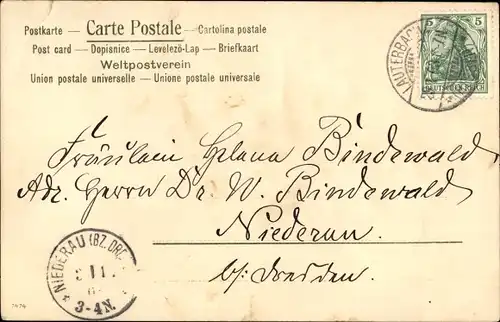 Postkarte — Carte Postale — Cartolina postale
Post card — Dopisnice — Levelező-Lap — Briefkaart
Weltpostverein
Union postale universelle — Unione postale universale
5 5
DEUTSCHES REICH
LAUTERBACH
Fräulein Helena Bindewald
Adr. Herrn Dr. W. Bindewald
Niederau
b/ Dresden.
NIEDERAU (BZ. DR
3-4N.
7474